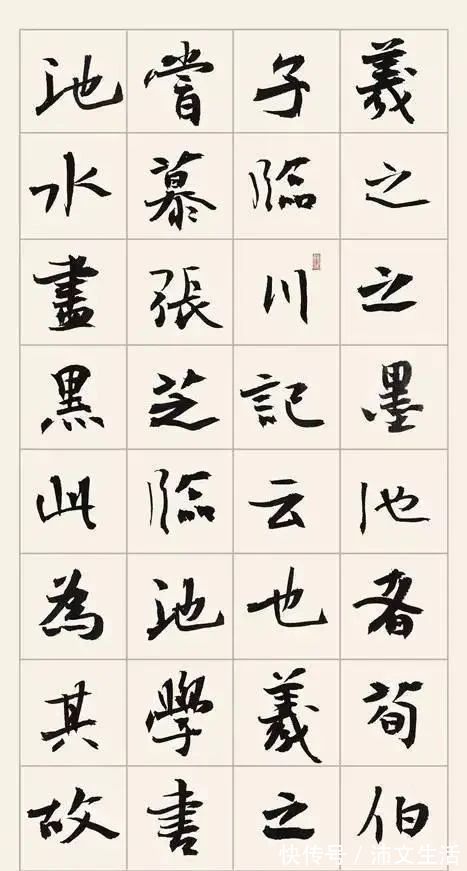 羲之之墨池者荀伯
子臨川記云也羲之
嘗慕張芝臨池學書
池水盡黑此為其故
快传号 / 沛文生活